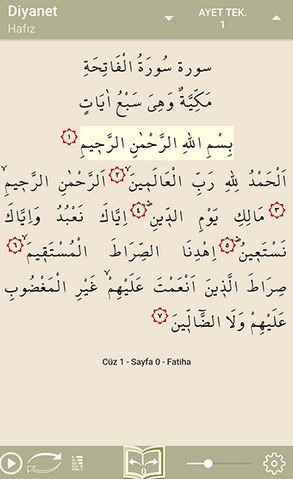 Diyanet
AYET TEK.
Hafız
1
سورة سُورَةُ الْفَاتِحَةِ
مَكِّيَّةٌ وَهِىَ سَبْعُ اٰيَاتٍ
بِسْمِ اللهِ الرَّحْمٰنِ الرَّحٖيمِ ١
اَلْحَمْدُ لِلّٰهِ رَبِّ الْعَالَمٖينَۙ ٢ اَلرَّحْمٰنِ الرَّحٖيمِۙ
٣ مَالِكِ يَوْمِ الدّٖينِؕ ٤ اِيَّاكَ نَعْبُدُ وَاِيَّاكَ
نَسْتَعٖينُؕ ٥ اِهْدِنَا الصِّرَاطَ الْمُسْتَقٖيمَۙ ٦
صِرَاطَ الَّذٖينَ اَنْعَمْتَ عَلَيْهِمْۙ غَيْرِ الْمَغْضُوبِ
عَلَيْهِمْ وَلَا الضَّٓالّٖينَ ٧
Cüz 1 - Sayfa 0 - Fatiha
0